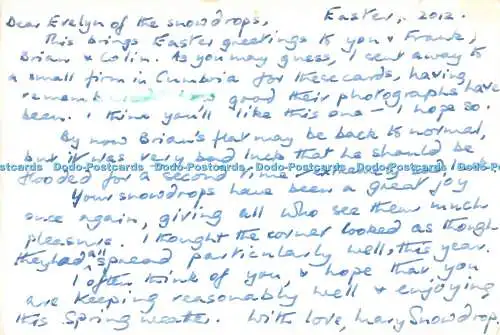 Dear Evelyn of the snowdrops, Easter, 2012.
This brings Easter greetings to you & Frank,
Brian & Colin. As you may guess, I sent away to
a small firm in Cumbria for these cards, having
remembered how good their photographs have
been. I think you'll like this one – I hope so.
By now Brian's flat may be back to normal,
but it was very bad luck that he should be
Postcards Dodo-Postcards Dodo-Postcards Dodo-Postcards Dodo-Postcards Dodo-Postcards Dodo-Postcards
flooded for a second time
Your snowdrops have been a great joy
once again, giving all who see them much
pleasure. I thought the corner looked as though
they had all spread particularly well, this year.
I often think of you, & hope that you
are keeping reasonably well & enjoying
this Spring weather. With love, Mary Snowdrop.